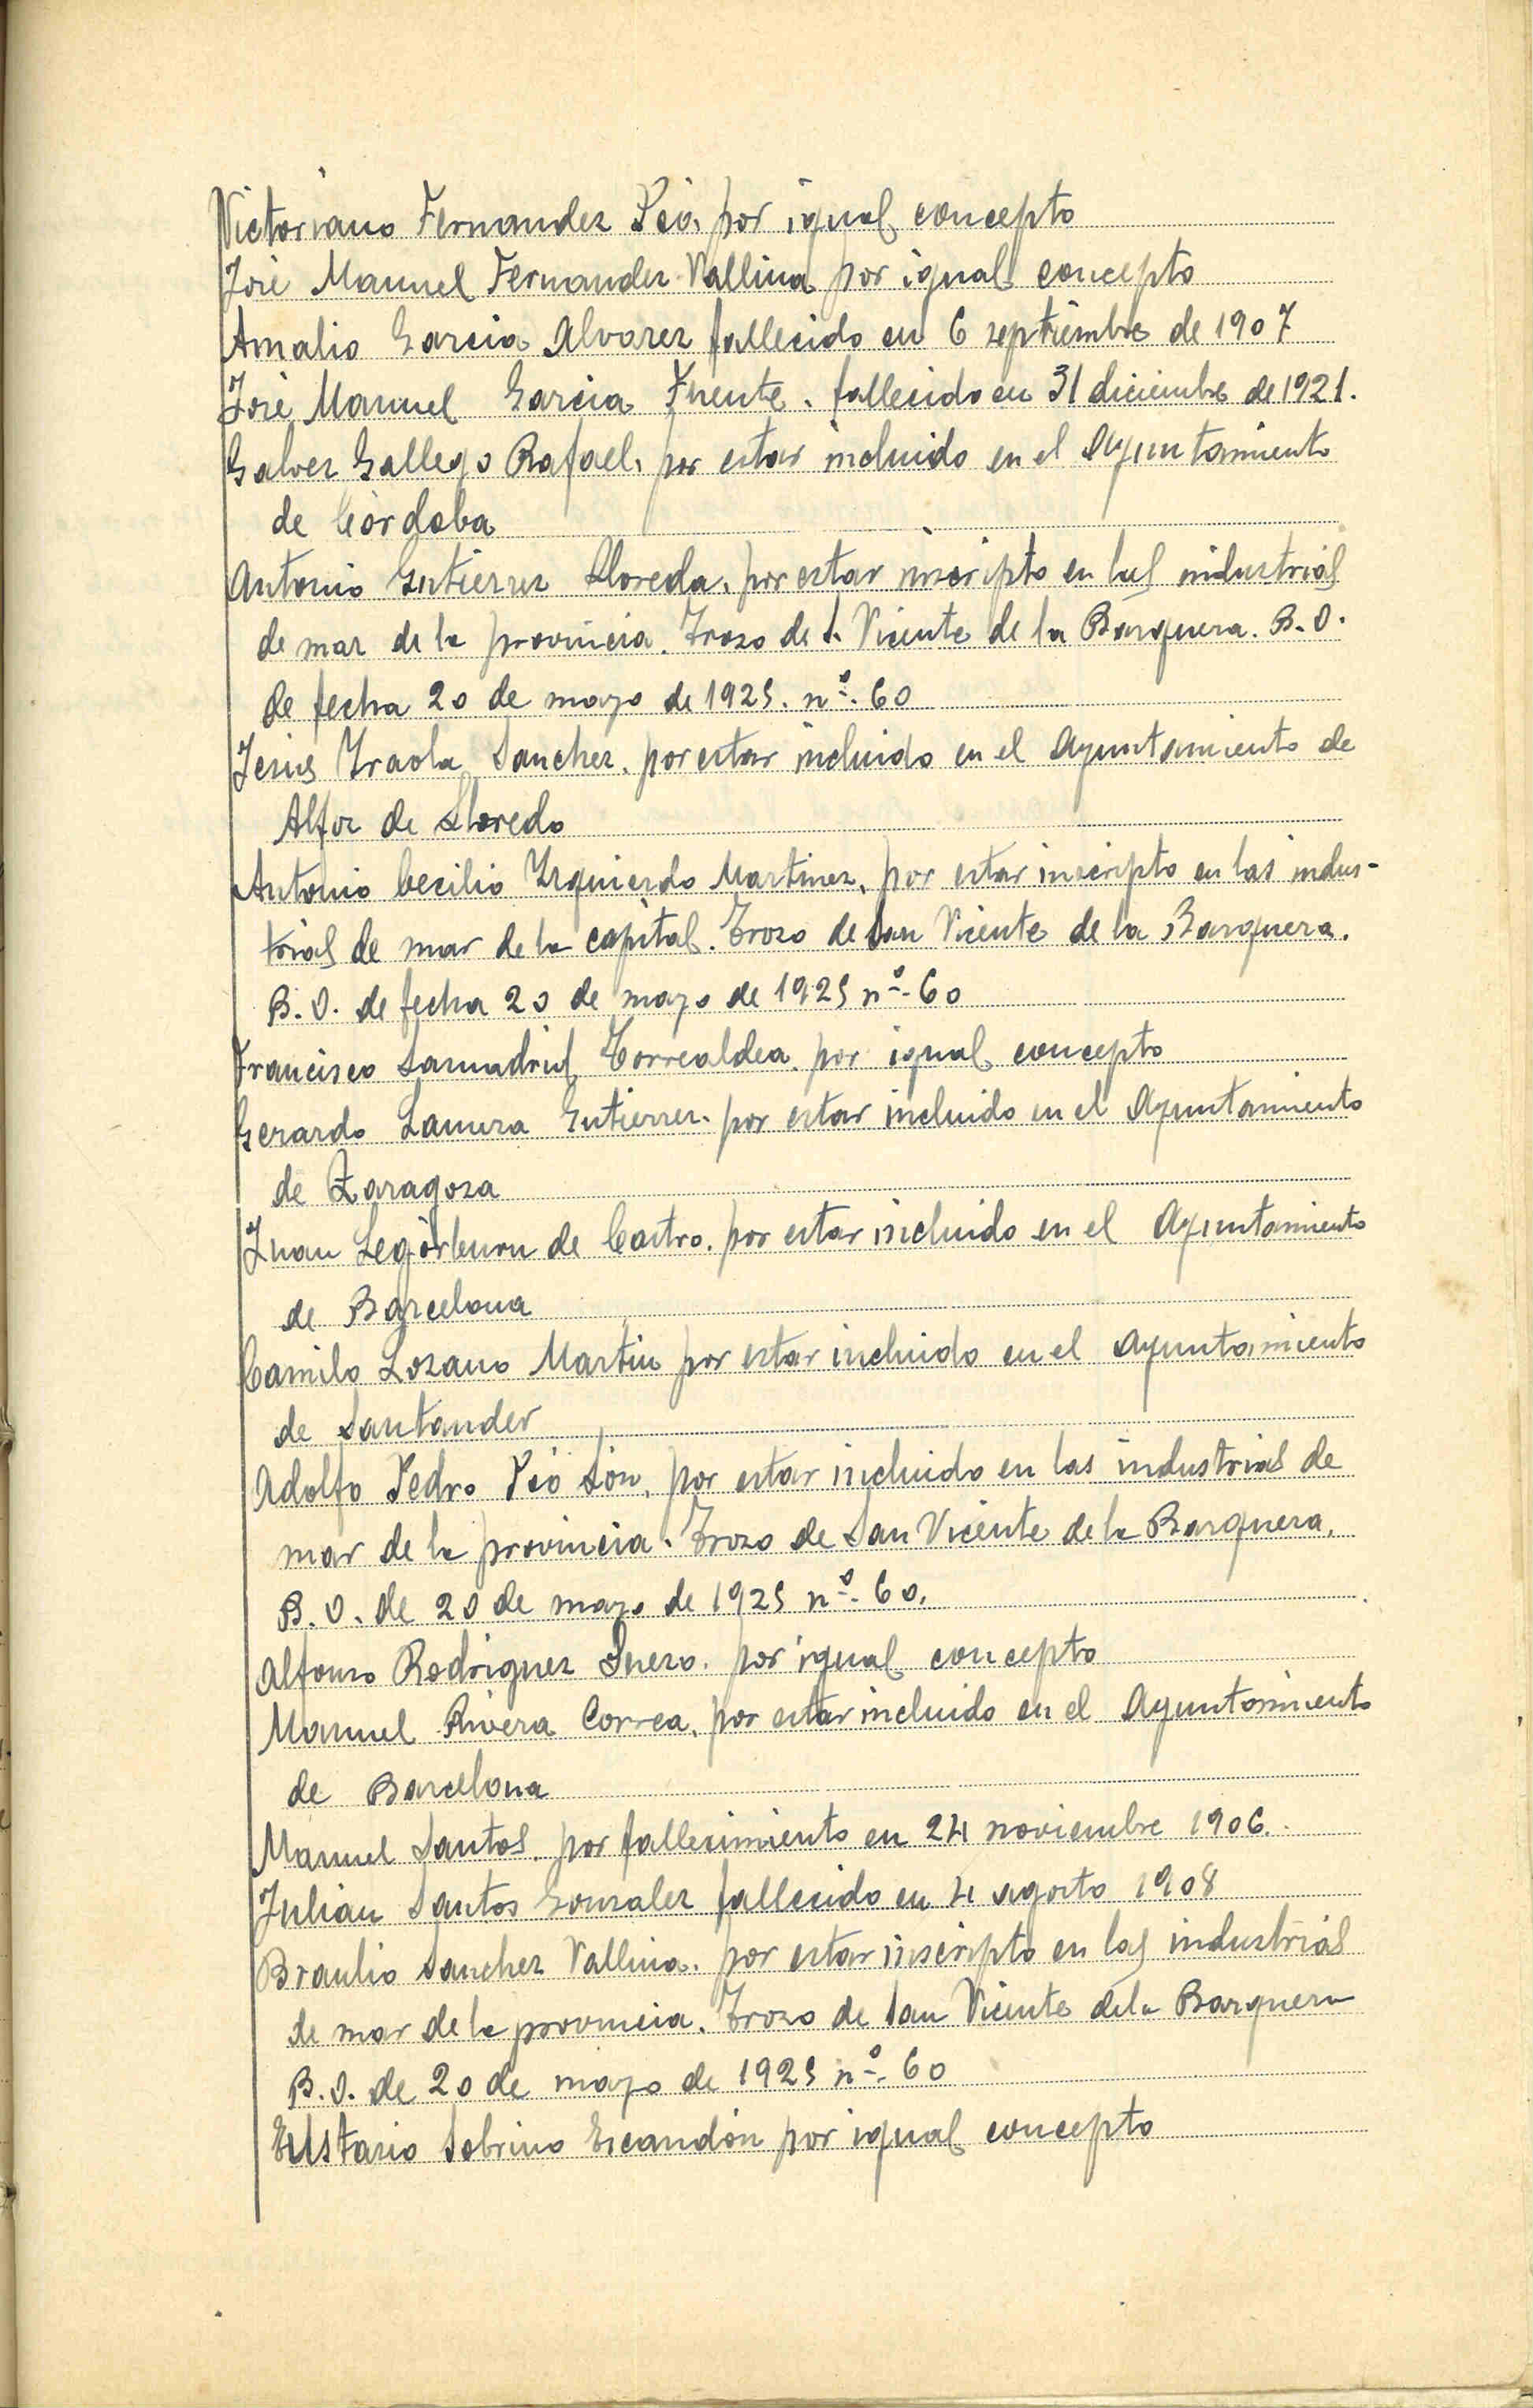 Victoriano Fernandez Peò. por igual concepto
José Manuel Fernandez Vallina por igual concepto
Amalio Garcia Alvarez fallecido en 6 septiembre de 1907
José Manuel Garcia Fuente. fallecido en 31 diciembre de 1921.
Galvez Gallego Rafael, por estar incluido en el Ayuntamiento
de Córdoba
Antonio Gutierrez Lloreda, por estar inscripto en las industrias
de mar de la provincia. Trozo de S. Vicente de la Barquera. B.O.
de fecha 20 de mayo de 1925. nº. 60
Jesus Iraola Sanchez. por estar incluido en el Ayuntamiento de
Alfoz de Lloredo
Antonio Cecilio Izquierdo Martinez, por estar inscripto en las indus-
trias de mar de la capital. Trozo de San Vicente de la Barquera.
B.O. de fecha 20 de mayo de 1925 nº. 60
Francisco Lamadrid Torrealdea. por igual concepto
Gerardo Lamera Gutierrez. por estar incluido en el Ayuntamiento
de Zaragoza
Juan Legórburu de Castro. por estar incluido en el Ayuntamiento
de Barcelona
Camilo Lozano Martin por estar incluido en el Ayuntamiento
de Santander
Adolfo Pedro Peó Son, por estar incluido en las industrias de
mar de la provincia. Trozo de San Vicente de la Barquera.
B.O. de 20 de mayo de 1925 nº. 60.
Alfonso Rodriguez Suero. por igual concepto
Manuel Rivera Correa, por estar incluido en el Ayuntamiento
de Barcelona
Manuel Santos. por fallecimiento en 24 noviembre 1906.
Julián Santos Gonzalez fallecido en 4 agosto 1908
Braulio Sanchez Vallina. por estar inscripto en las industrias
de mar de la provincia. Trozo de San Vicente de la Barquera
B.O. de 20 de mayo de 1925 nº. 60
Eustasio Sobrino Escandón por igual concepto